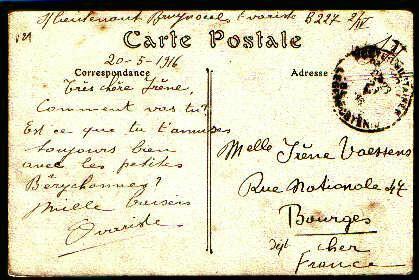 Lieutenant Bruynseels Evariste B227 2/IV
Carte Postale
20-5-1916
Correspondance
Adresse
Très chère Irène,
Comment vas tu?
Est ce que tu t'amuses
toujours bien
avec les petites
Mille baisers
Evariste
Melle Irène Vaessens
Rue Nationale 47
Bourges
dépt Cher
France